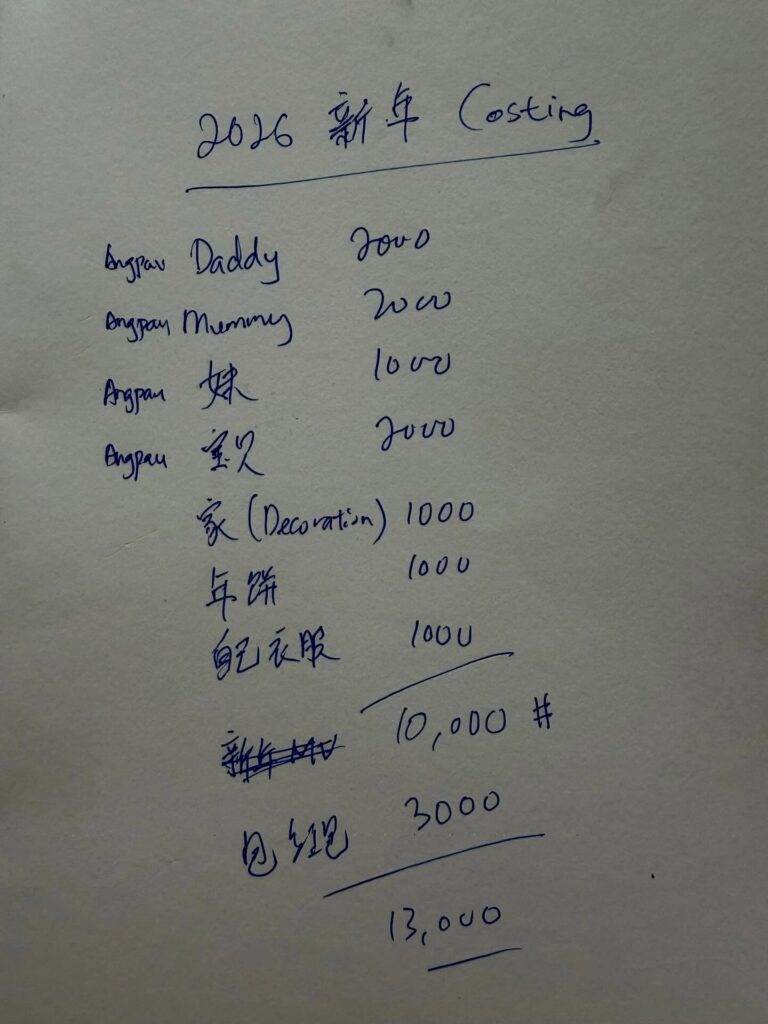 2026 新年 Costing
Angpau Daddy 2000
Angpau Mummy 2000
Angpau 妹 1000
Angpau 宝贝 2000
家 (Decoration) 1000
年饼 1000
自己衣服 1000
10,000 #
新年 MV
包红包 3000
13,000